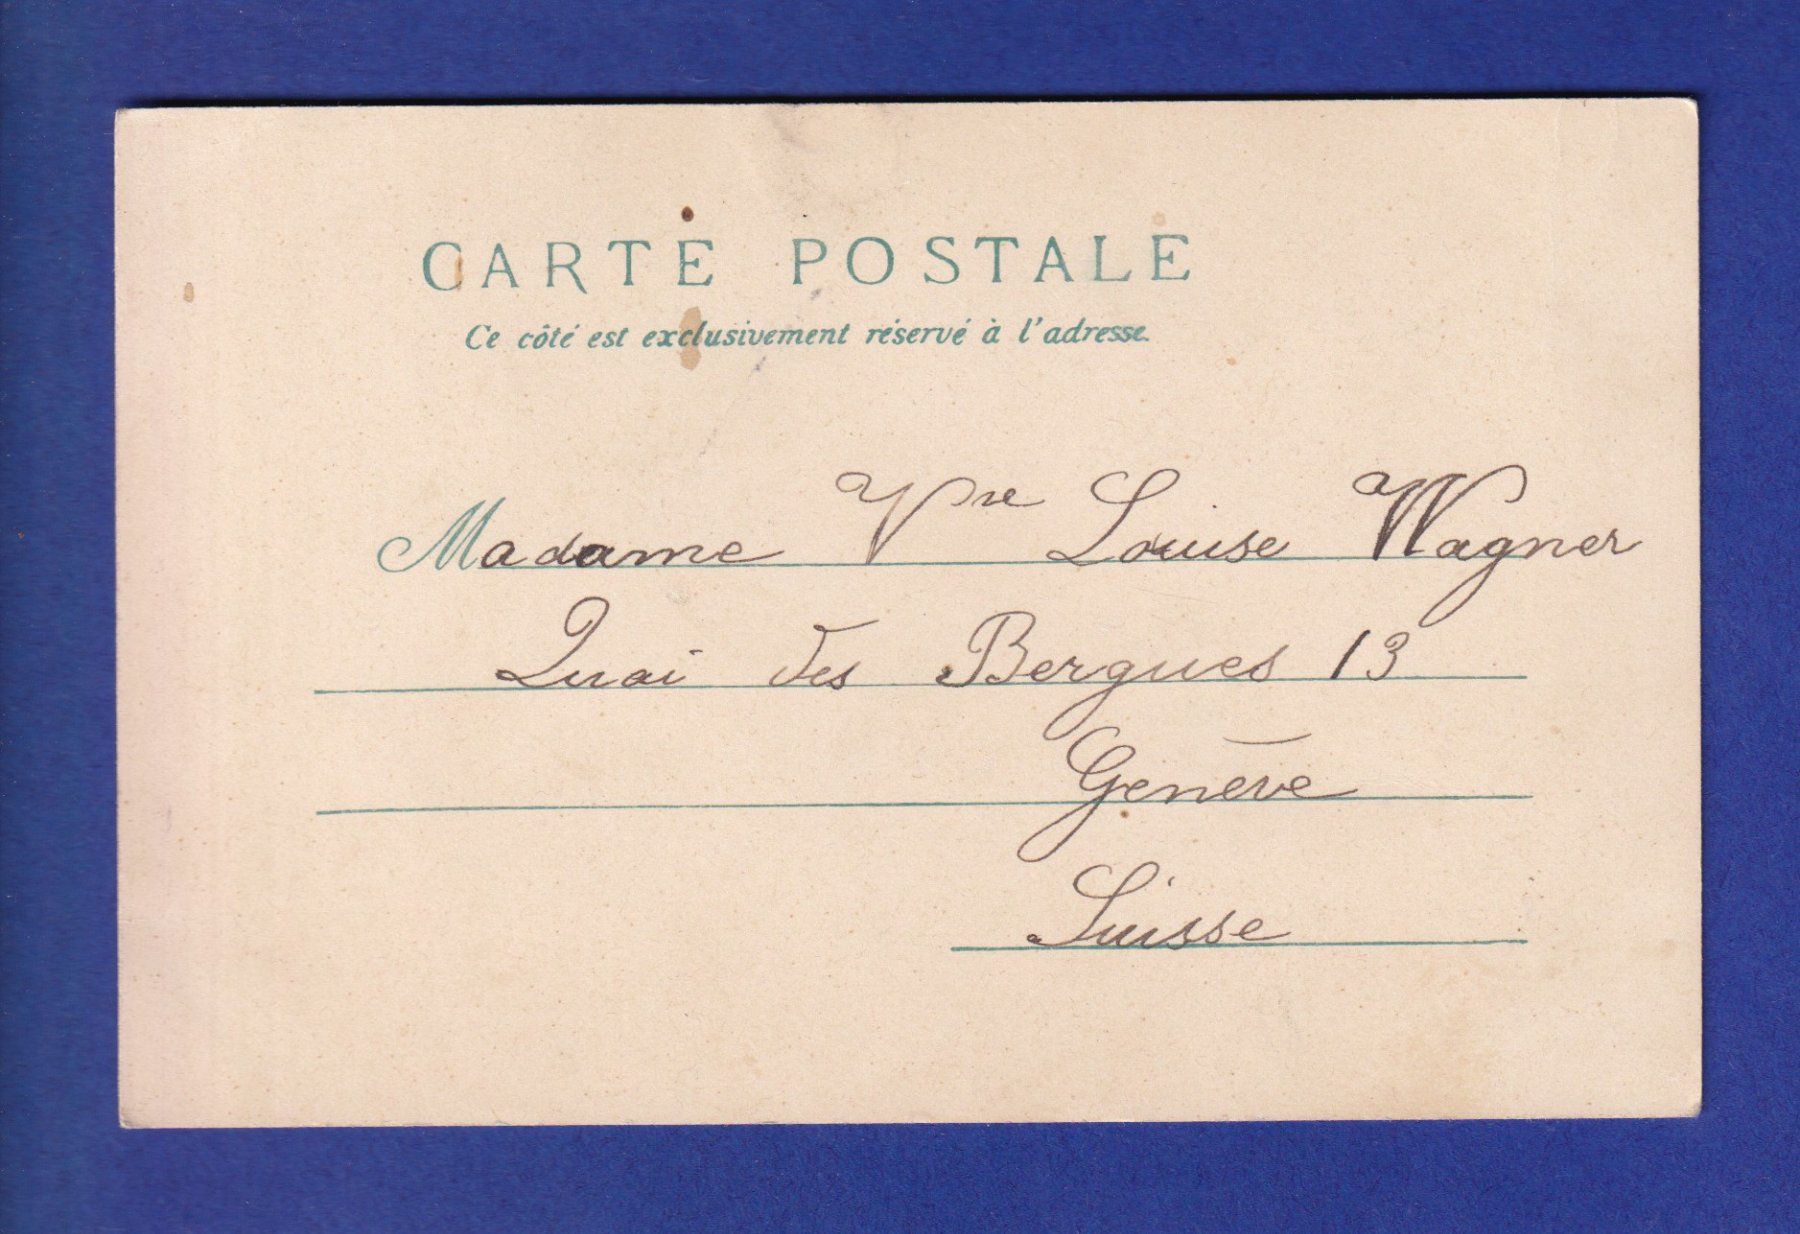 CARTE POSTALE
Ce côté est exclusivement réservé à l'adresse.
Madame Vve Louise Wagner
Quai des Bergues 13
Genève
Suisse